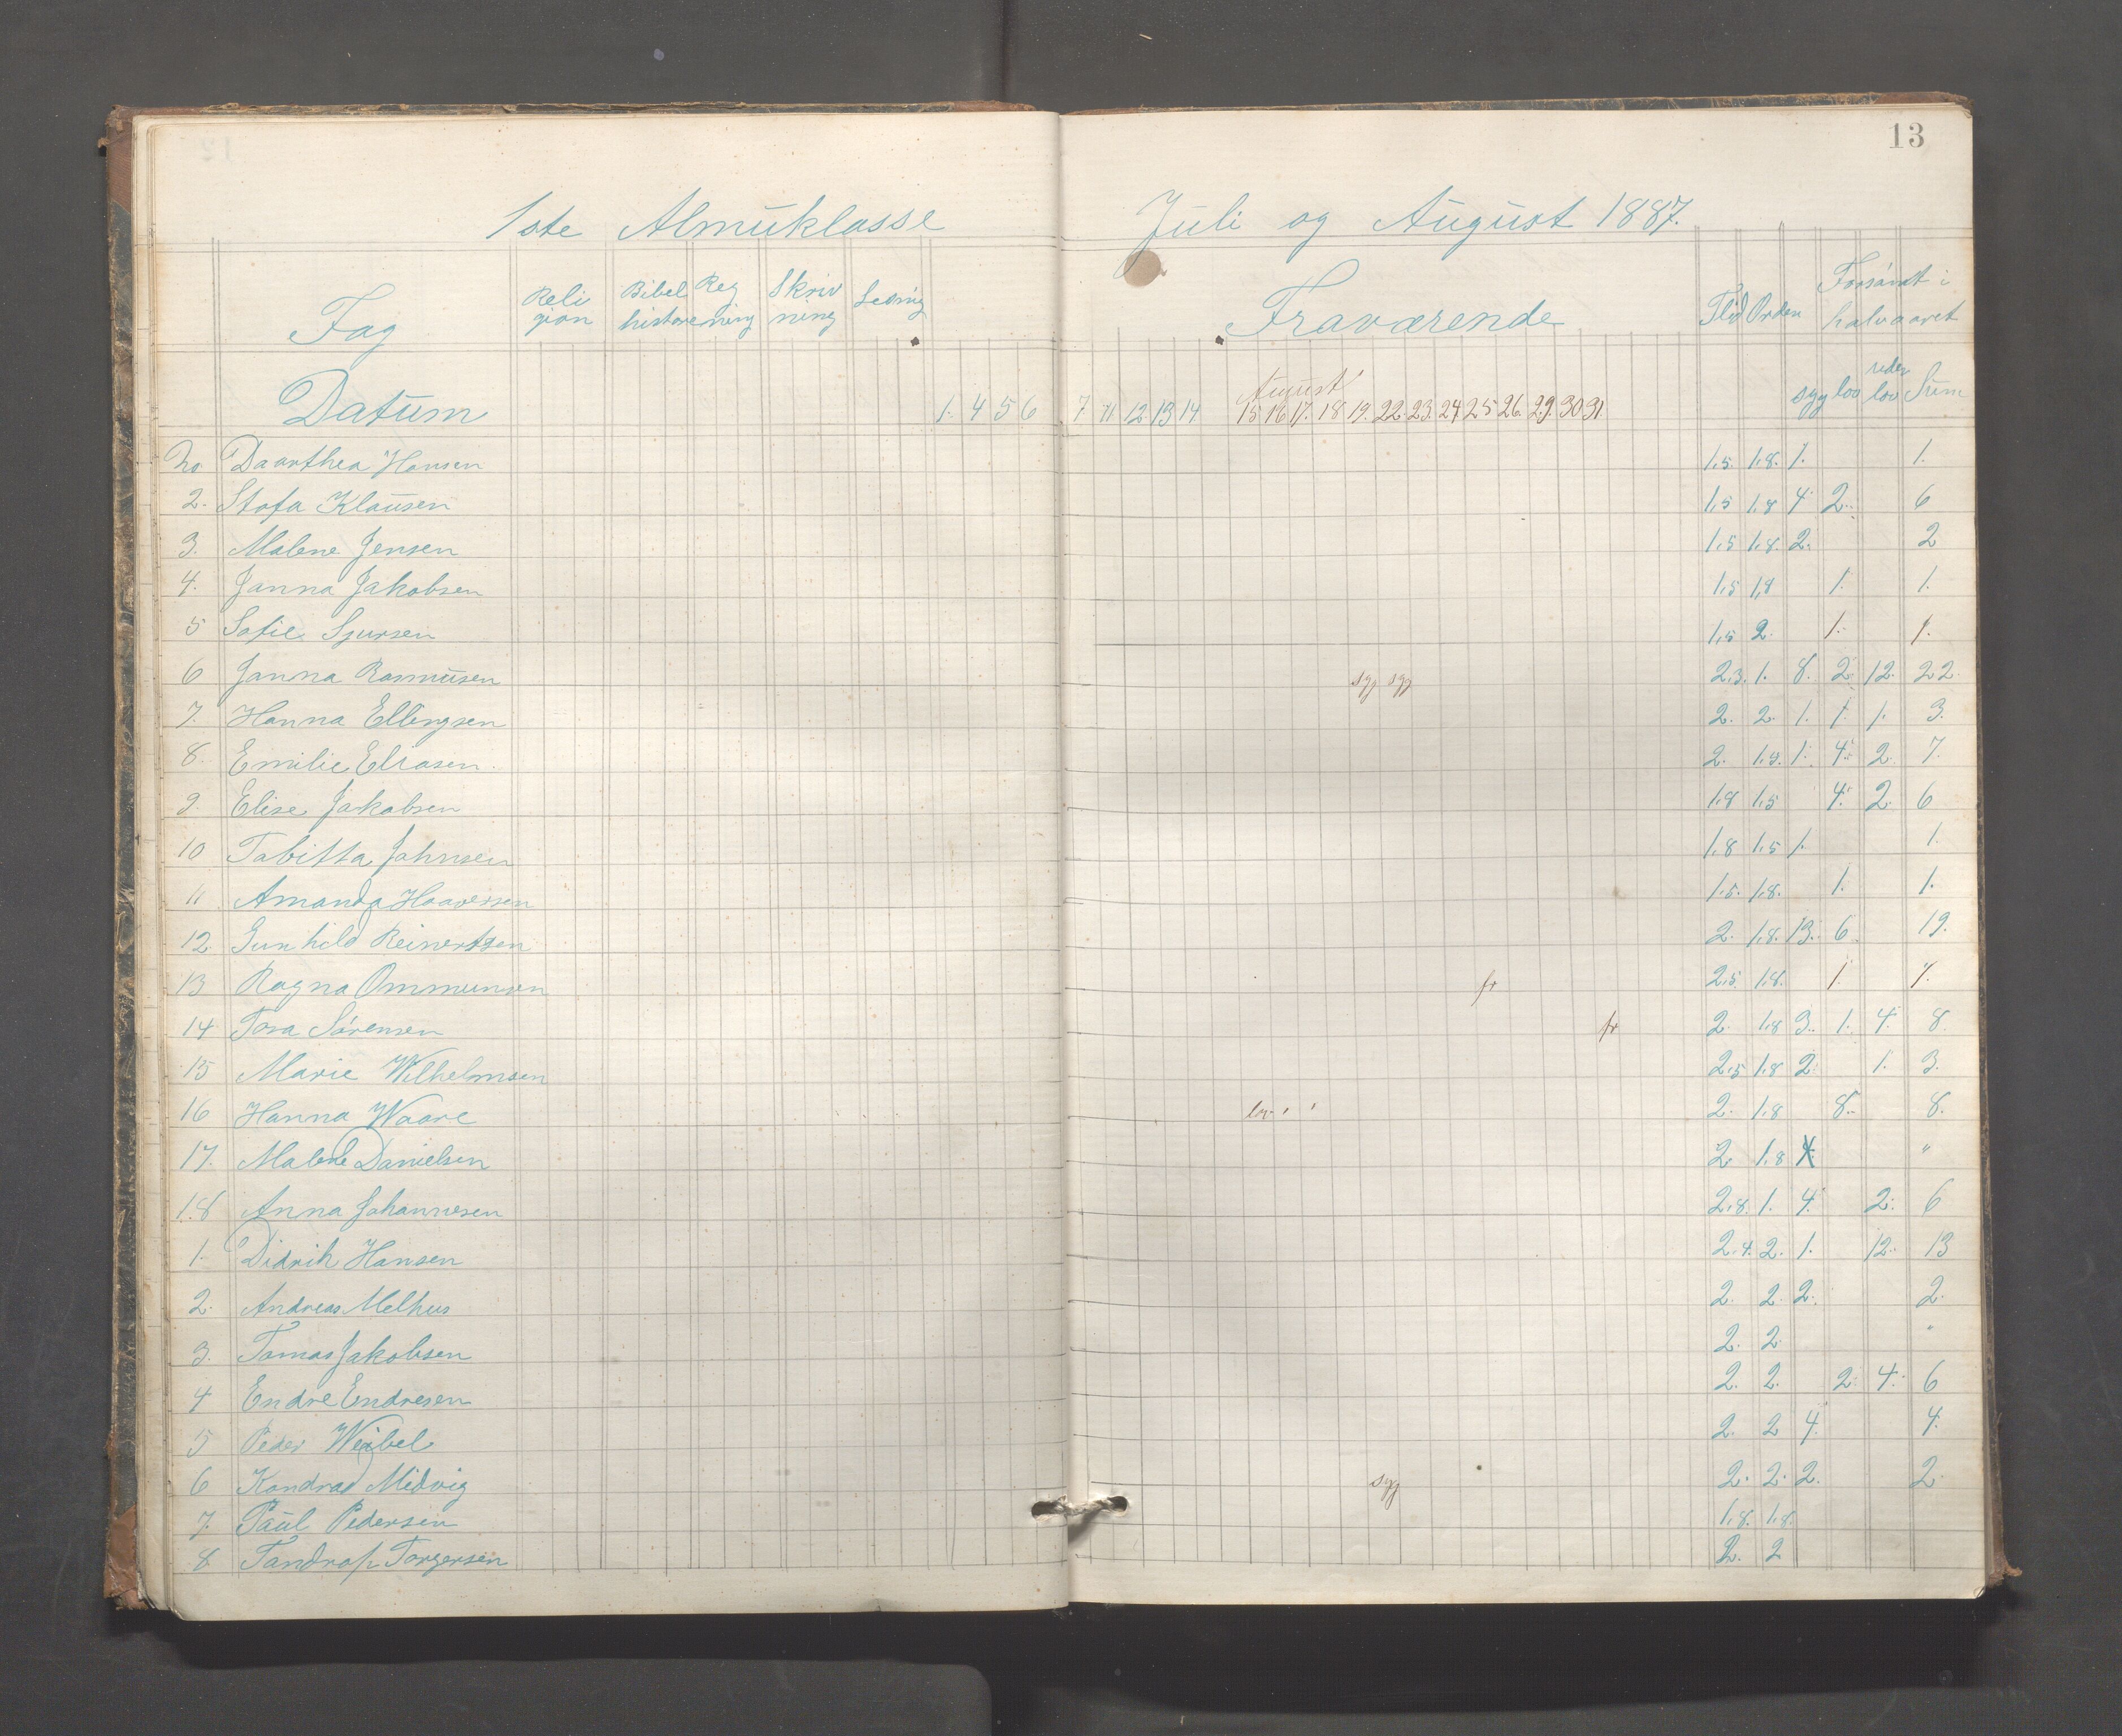 13
1ste Almuklasse Juli og August 1887.
Fag Religion Bibelhistorie Regning Skrivning Lesnig Fraværende Flid Orden Forsømt i halvaaret
Datum 1. 4 5 6 7 11 12 13 14 August 15 16 17. 18 19. 22. 23. 24 25 26. 29. 30 31. syg lov uden lov Sum
No Daarthea Hansen 1,5. 1,8. 1. 1.
2. Stofa Klausen 1,5 1,8 4 2. 6
3. Malene Jensen 1,5 1,8. 2. 2
4. Janna Jakobsen 1,5 1,8 1. 1.
5 Sofie Sjursen 1,5 2. 1. 1.
6 Janna Rasmusen syg syg 2,3. 1. 8. 2. 12. 22.
7. Hanna Ellingsen 2. 2. 1. 1. 1. 3.
8. Emilie Eliasen 2. 1,9. 1. 4. 2. 7.
9. Elise Jakobsen 1,8 1,5 4. 2. 6
10 Tabitta Johnsen 1,8 1,5 1. 1.
11 Amanda Haaversen 1,5. 1,8. 1. 1.
12 Gunhild Reinertsen 2. 1,8. 13. 6 19.
13 Ragna Ommunsen fr 2,5. 1,8. 1. 1.
14 Tora Sørensen fr 2. 1,8 3. 1. 4. 8.
15 Marie Wilhelmsen 2,5 1,8 2. 1. 3.
16 Hanna Waare lov ' ' 2. 1,8 8. 8.
17. Malene Danielsen 2. 1,8 4 "
18 Anna Johannesen 2,8. 1. 4. 2. 6
1. Didrik Hansen 2,4. 2. 1. 12. 13
2. Andreas Melhus 2. 2. 2. 2.
3. Tomas Jakobsen 2. 2. "
4 Endre Endresen 2. 2. 2. 4. 6
5 Peder Weibel 2. 2 4. 4.
6 Kondrad Midvig syg 2. 2. 2. 2.
7. Paul Pedersen 1,8. 1,8.
8 Tandrop Torgersen 2. 2